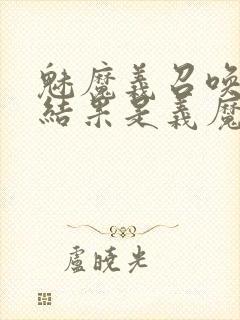 魅魔義召喚
結果是義魔
盧曉光